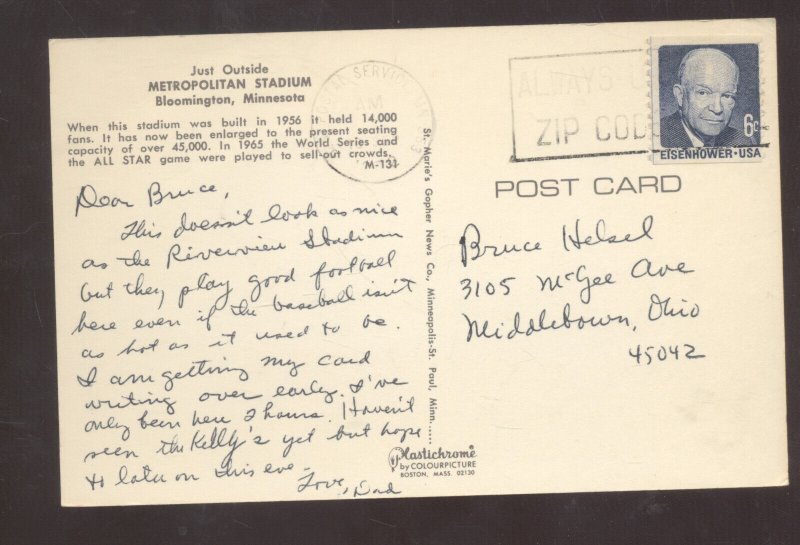 Just Outside
METROPOLITAN STADIUM
Bloomington, Minnesota
When this stadium was built in 1956 it held 14,000
fans. It has now been enlarged to the present seating
capacity of over 45,000. In 1965 the World Series and
the ALL STAR game were played to sell-out crowds.
M-131
Dear Bruce,
This doesn't look as nice
as the Riverview Stadium
but they play good football
here even if the baseball isn't
as hot as it used to be.
I am getting my card
writing over early. I've
only been here 2 hours. Haven't
seen the Kelly's yet but hope
to later on this eve.
Love, Dad
St. Marie's Gopher News Co., Minneapolis-St. Paul, Minn.....
Plastichrome
by COLOURPICTURE
BOSTON, MASS. 02130
SERVICE
AM
ALWAYS
ZIP CODE
6c
EISENHOWER·USA
POST CARD
Bruce Helsel
3105 McGee Ave
Middletown, Ohio
45042